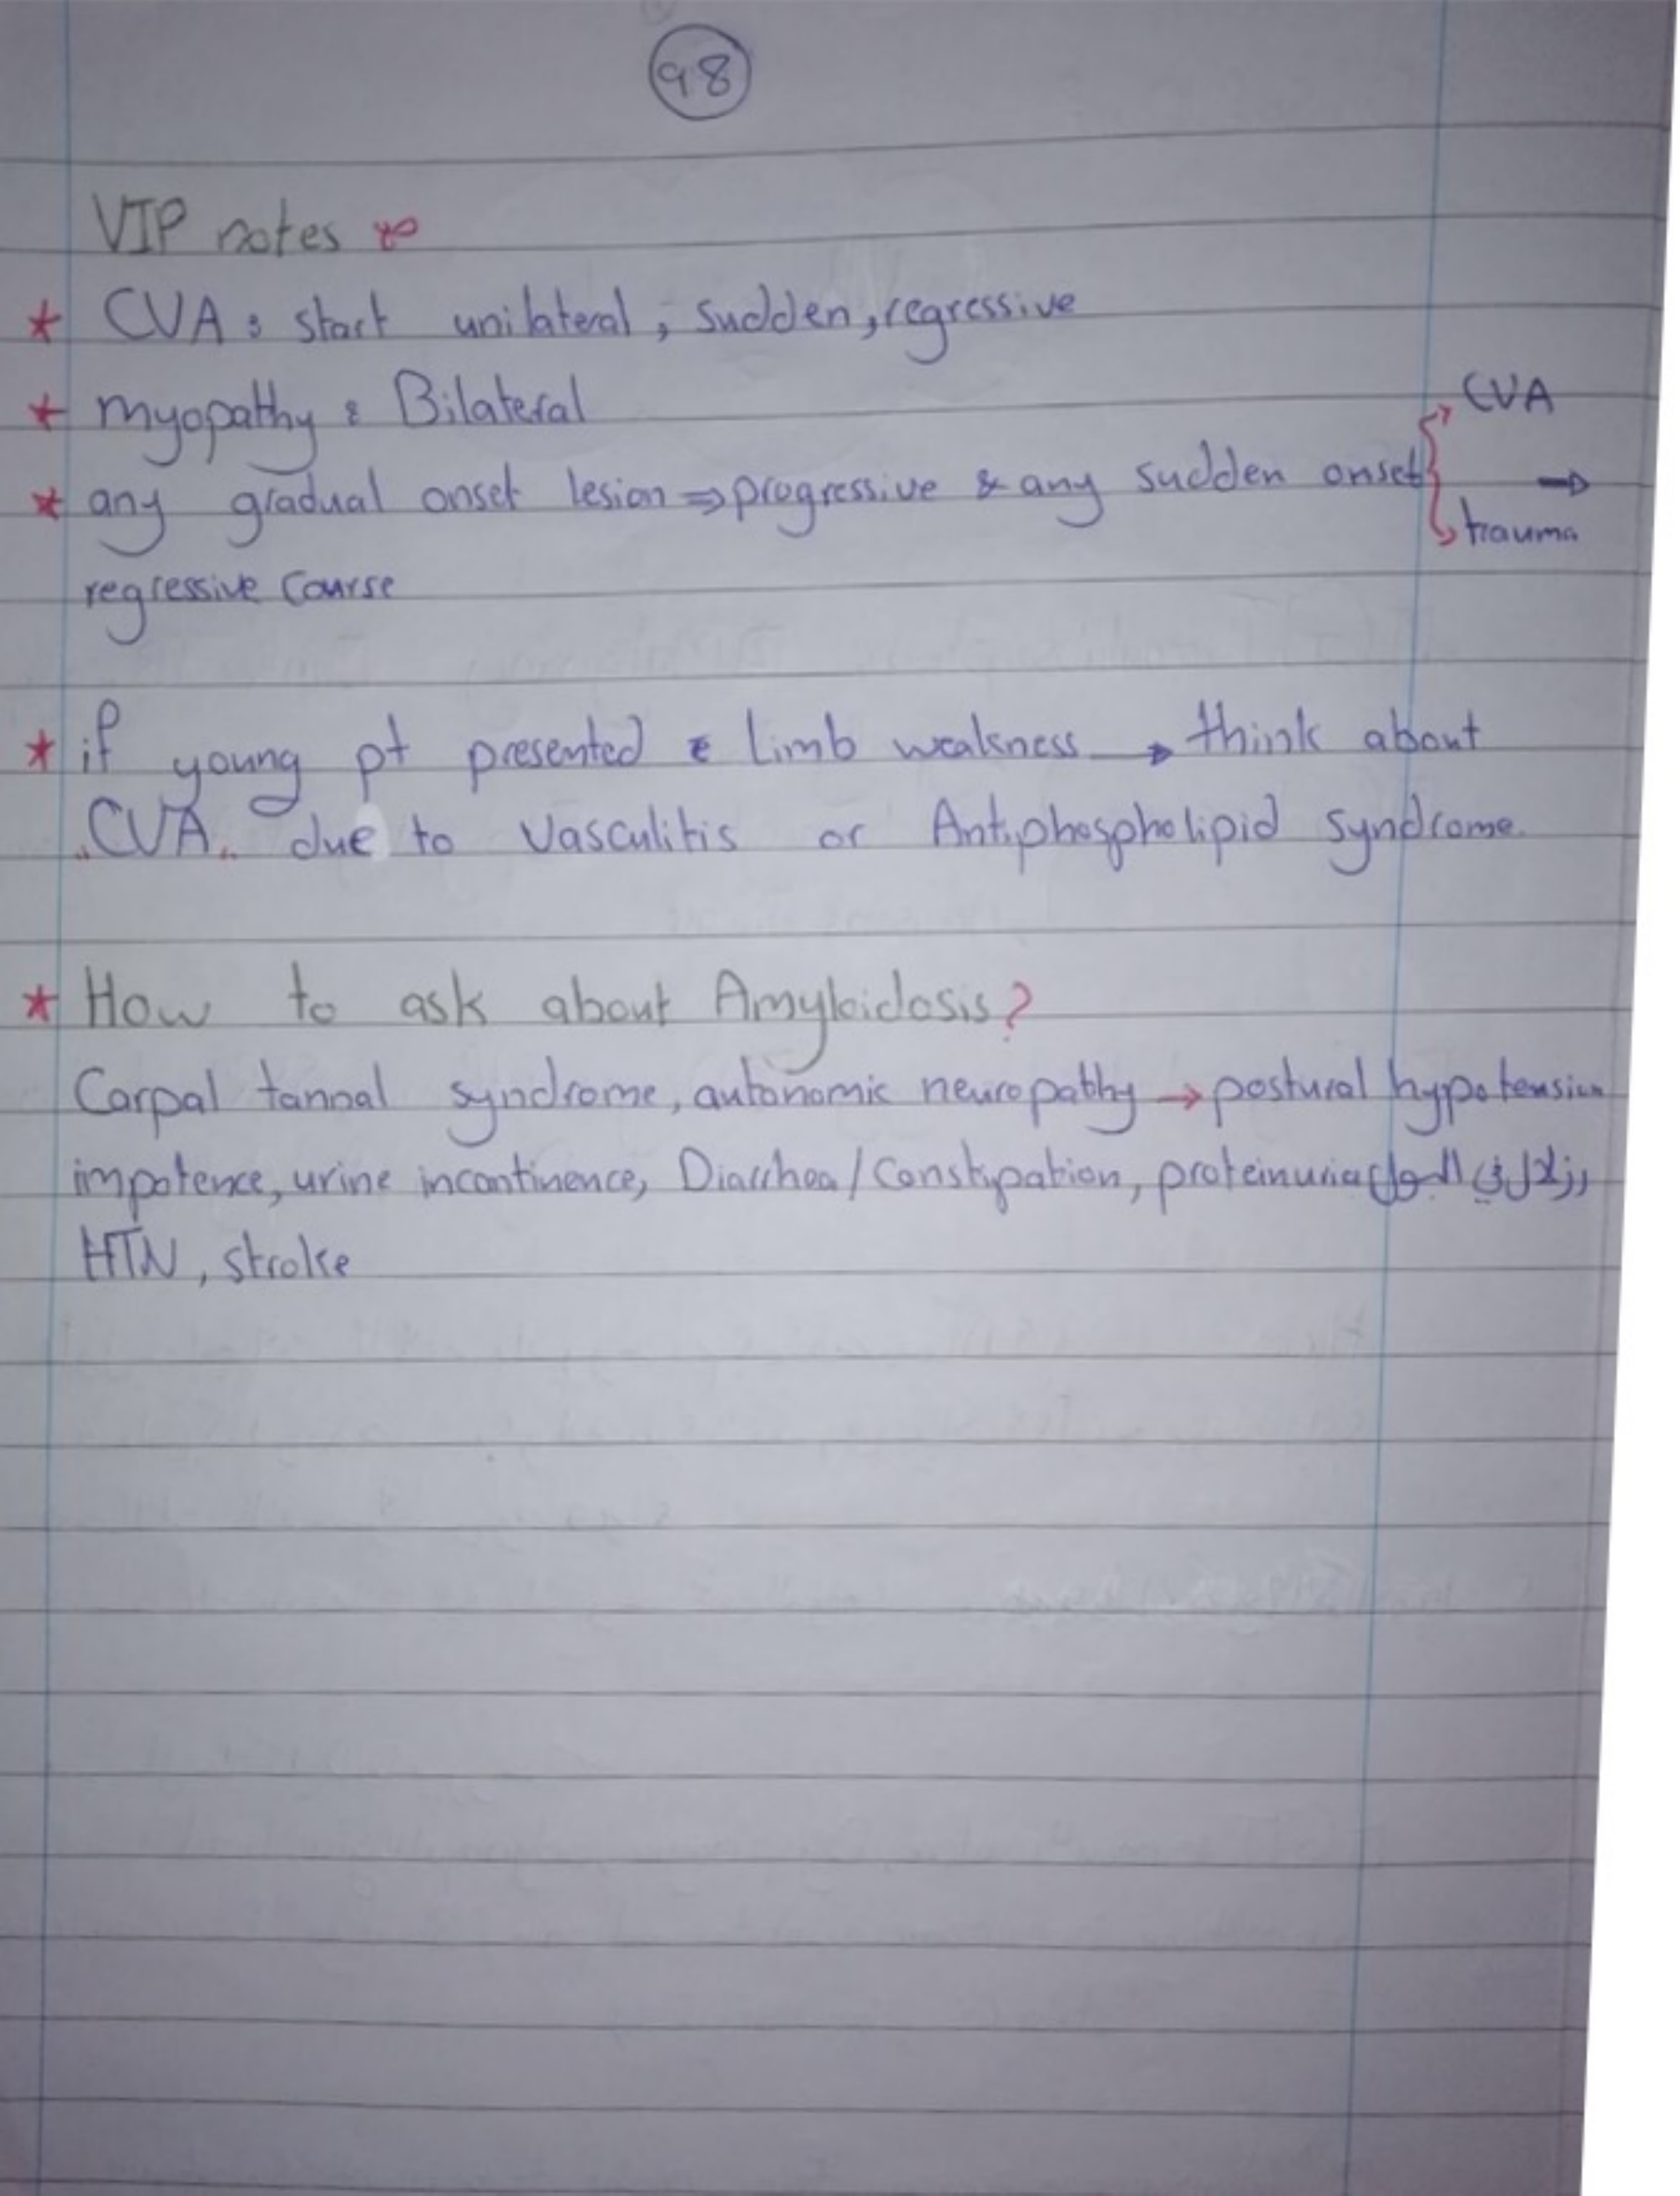 98
VIP notes
* CVA: start unilateral, sudden, regressive
* myopathy: Bilateral
* any gradual onset lesion ⇒ progressive & any sudden onset { CVA
trauma ⇒
regressive Course
* if young pt presented c̄ limb weakness → think about
"CVA" due to Vasculitis or Antiphospholipid syndrome.
* How to ask about Amyloidosis?
Carpal tannal syndrome, autonomic neuropathy → postural hypotension
impotence, urine incontinence, Diarrhea/Constipation, proteinuria (زلال في البول),
HTN, stroke